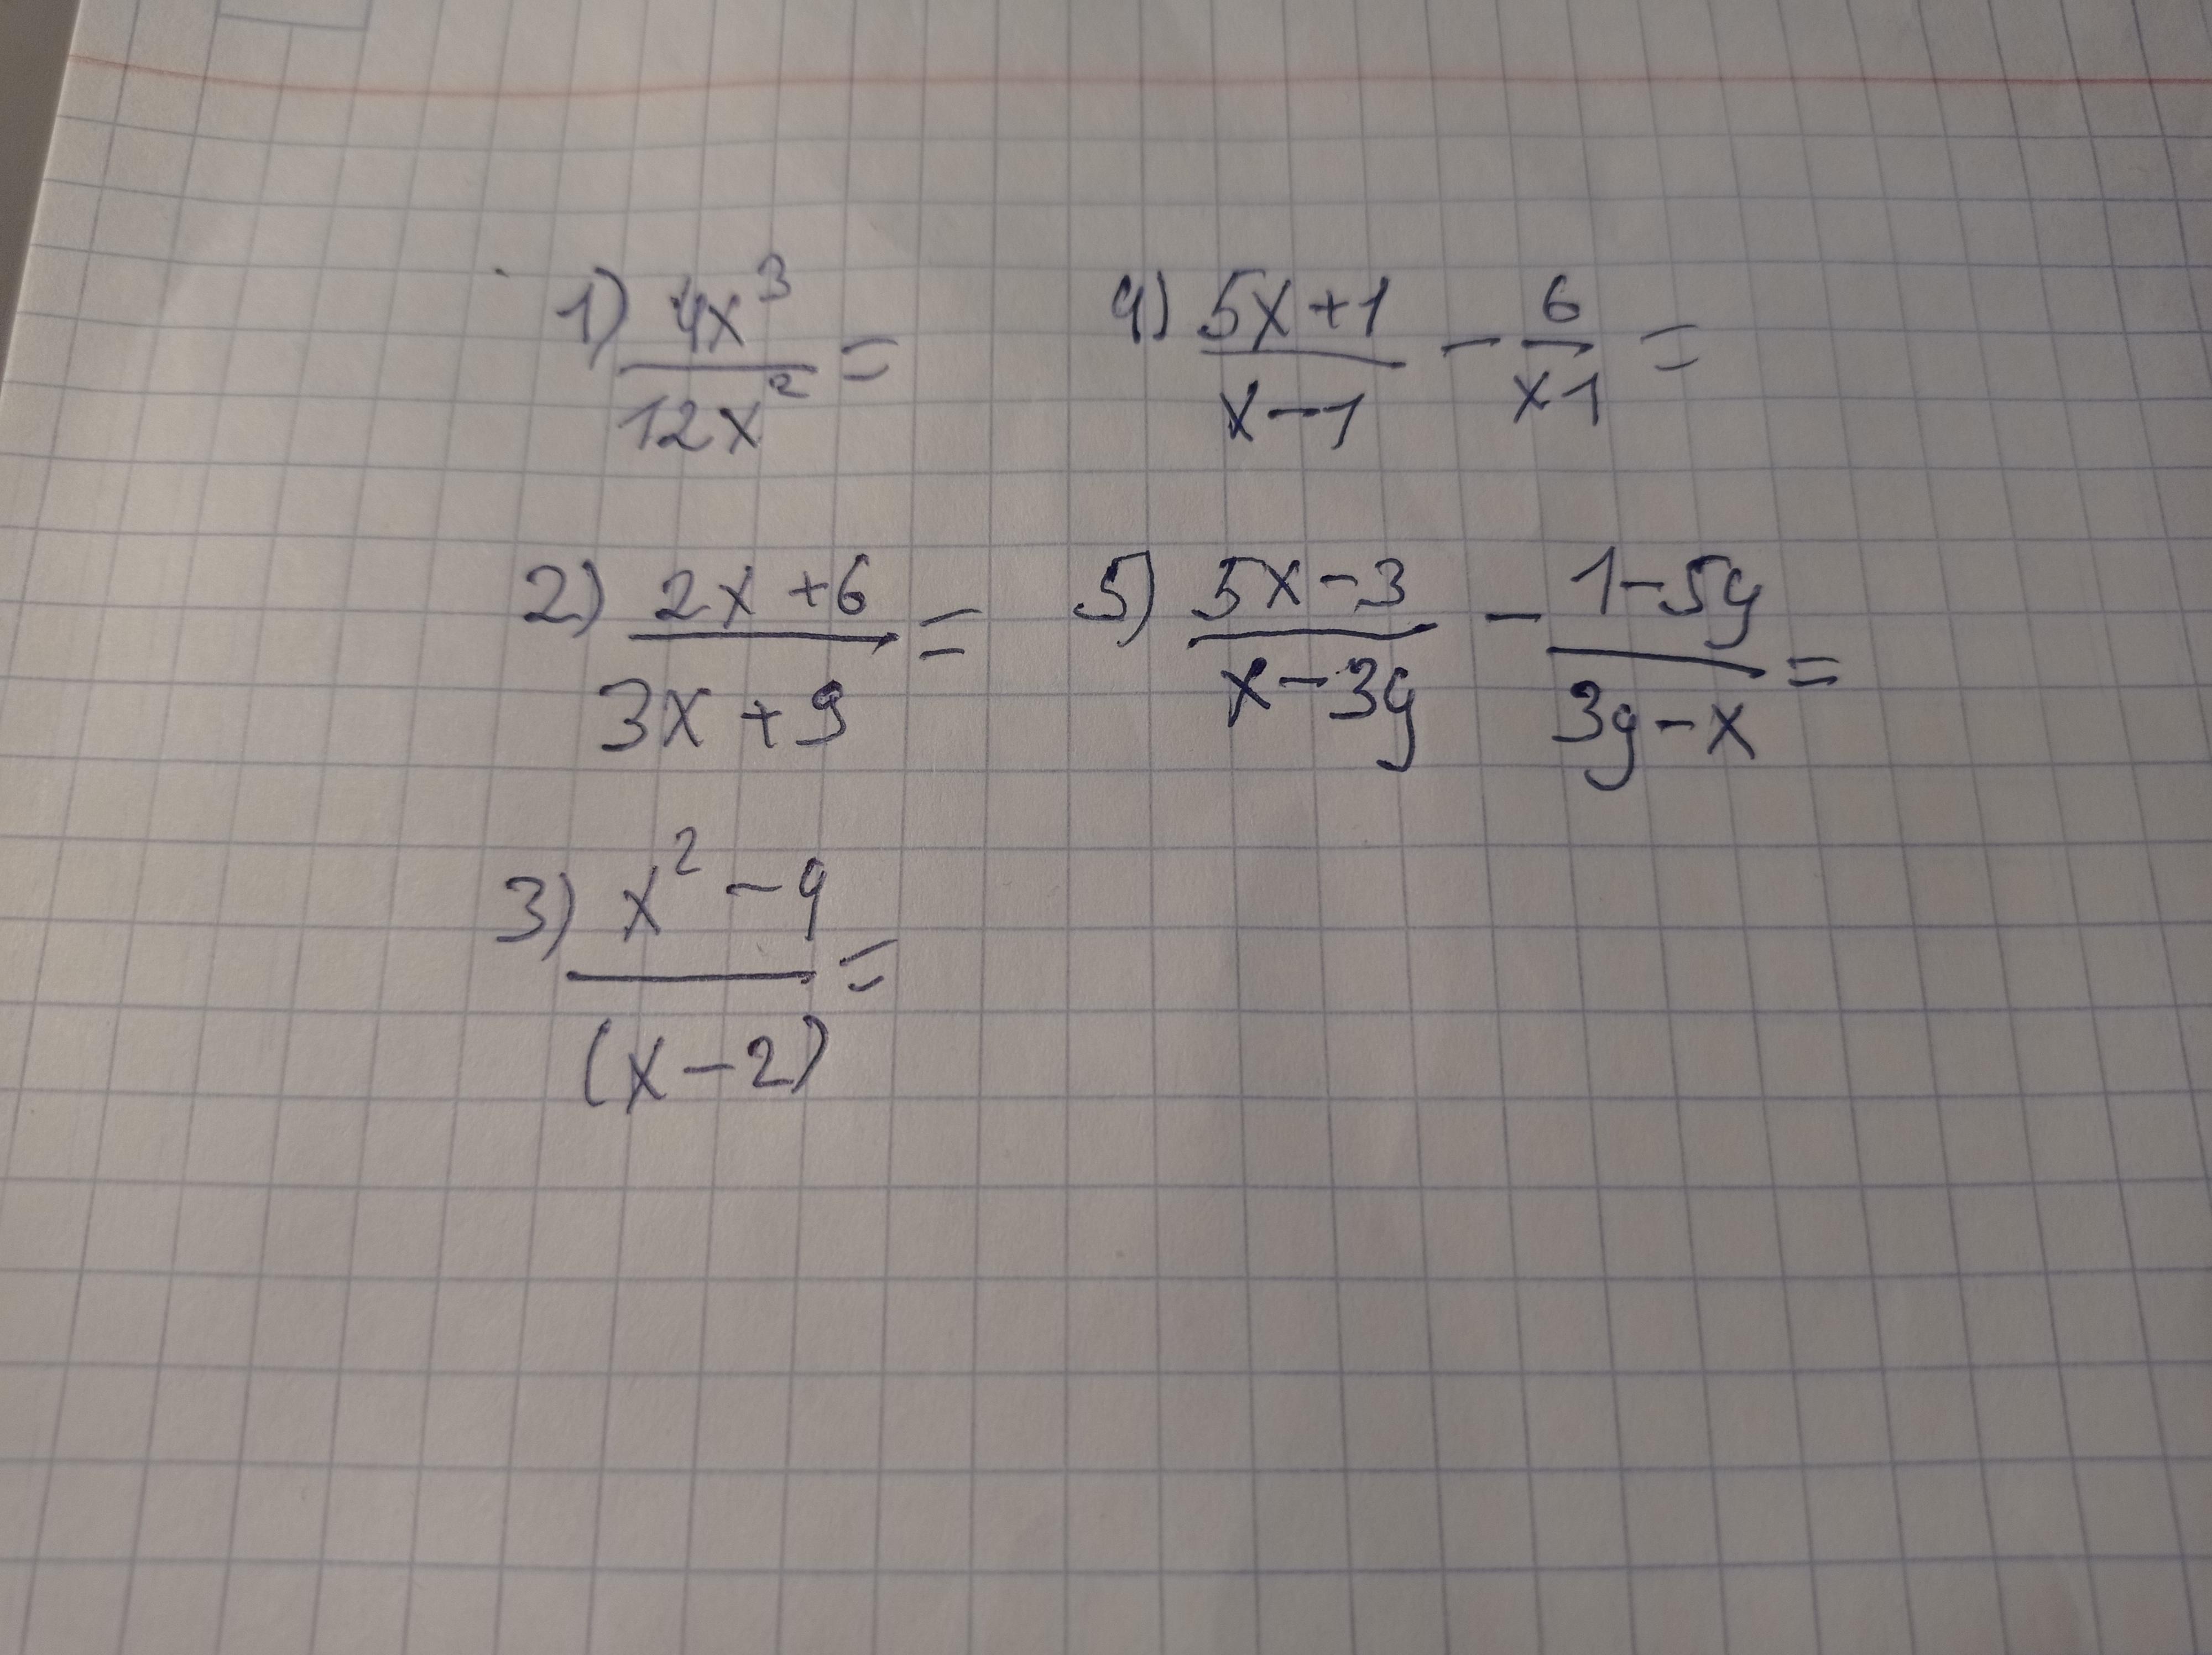 1) 4x³
12x² =
2) 2x + 6
3x + 9 =
3) x² - 4
(x - 2) =
4) 5x + 1 / x - 1 - 6 / x 1 =
5) 5x - 3 / x - 3y - 1 - 5y / 3y - x =